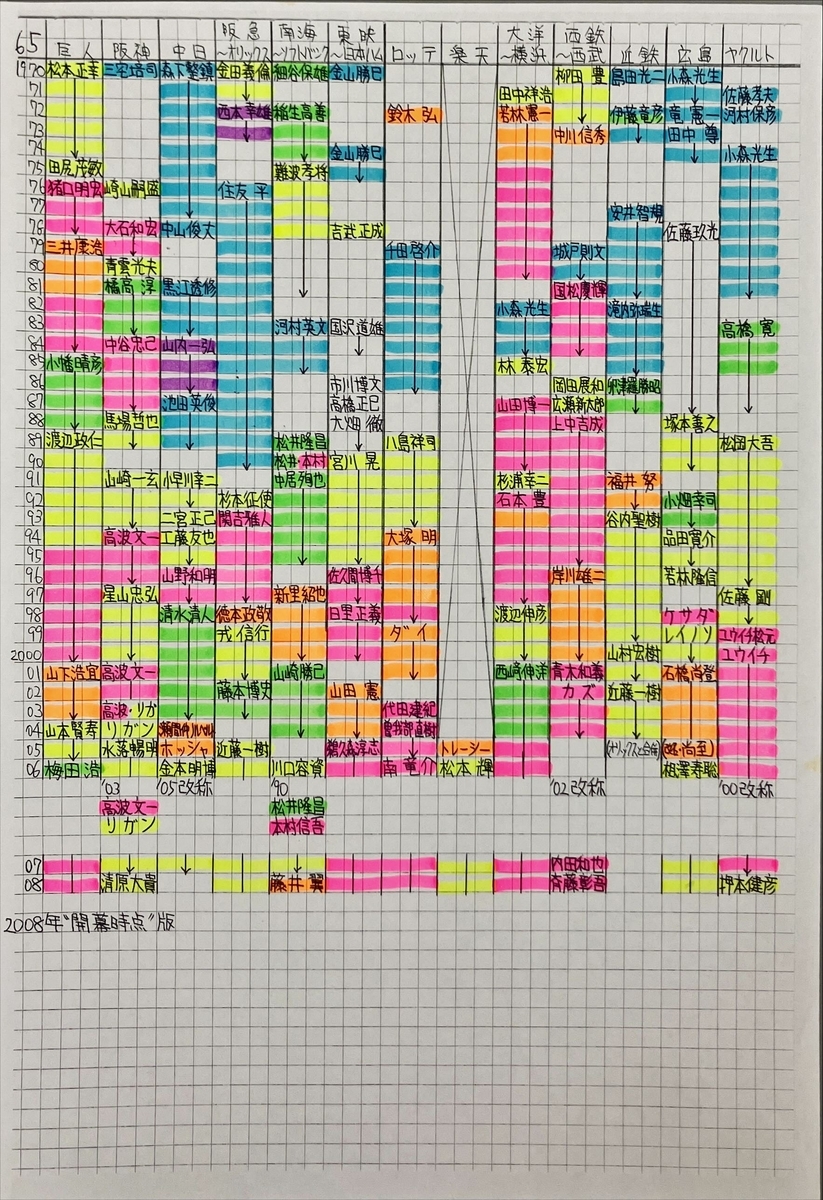 65 巨人 阪神 中日 阪急~オリックス 南海~ソフトバンク 東映~日本ハム ロッテ 楽天 大洋~横浜 西鉄~西武 近鉄 広島 ヤクルト
1970 松本正幸 三宅培司 森下整鎮 金田義倫 細谷保雄 金山勝巳 柳田 豊 島田光二 小森光生
71 田中祥浩 佐藤孝夫
72 西本幸雄 稲生高善 鈴木 弘 若林憲一 伊藤竜彦 竜 憲一 河村保彦
73 中川信秀 田中 尊
74 金山勝巳 小森光生
75 田尻茂敏 難波孝将
76 猪口明宏 崎山嗣盛 住友 平
77 安井智規
78 大石和宏 中山俊丈 吉武正成 佐藤玖光
79 三井康浩 千田啓介 城戸則文
80 青雲光夫
81 橘高 淳 黒江透修 国松慶輝
82 小森光生 滝内弥瑞生
83 河村英文 国沢道雄 高橋 寛
84 中谷忠己 山内一弘
85 小幡晴彦 林 泰宏
86 市川博文 岡田展和
87 池田英俊 高橋正巳 山田博一 広瀬新太郎
88 馬場哲也 大畑 徹 上中吉成 塚本善之
89 渡辺政仁 松井隆昌 八島祥司 松岡大吾
90 松井・本村 宮川 晃
91 山崎一玄 小早川幸二 中居殉也 杉浦幸二 福井 努
92 杉本征使 石本 豊 小畑幸司
93 二宮正己 関吉雅人 谷内聖樹
94 高波文一 工藤友也 大塚 明 品田寛介
95
96 山野和明 佐久間博千 岸川雄二 若林隆信
97 星山忠弘 新里紹也 佐藤 剛
98 清水清人 徳本政敬 日里正義 渡辺伸彦 ケサダ
99 戎 信行 ダイ レイノソ ユウイチ松元
2000 山村宏樹 ユウイチ
01 山下浩宜 高波文一 山崎勝己 西崎伸洋 青木和義 石橋尚登
02 藤本博史 山田 憲 カズ 近藤一樹
03 高波・リガ 代田建紀
04 山本賢寿 リガン 曽我部直樹
05 水落暢明 ホッシャ 近藤一樹 鵜久森淳志 トレーシー (オリックスと合併) (如・尚至)
06 梅田 浩 金本明博 川口容資 南 竜介 松本 輝 相澤寿聡
'03 '05改称 '90 '02改称 '00改称
高波文一 松井隆昌
リガン 本村信吾
07 内田和也
08 清原大貴 藤井 翼 斉藤彰吾 押本健彦
2008年"開幕時点"版